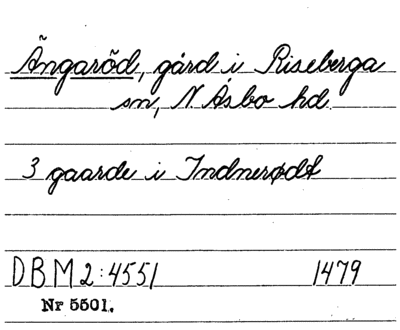 Ängaröd, gård i Riseberga
sn, N Åsbo hd.
3 gaarde i Indnerødt
DBM 2:4551 1479
Nr 5501.